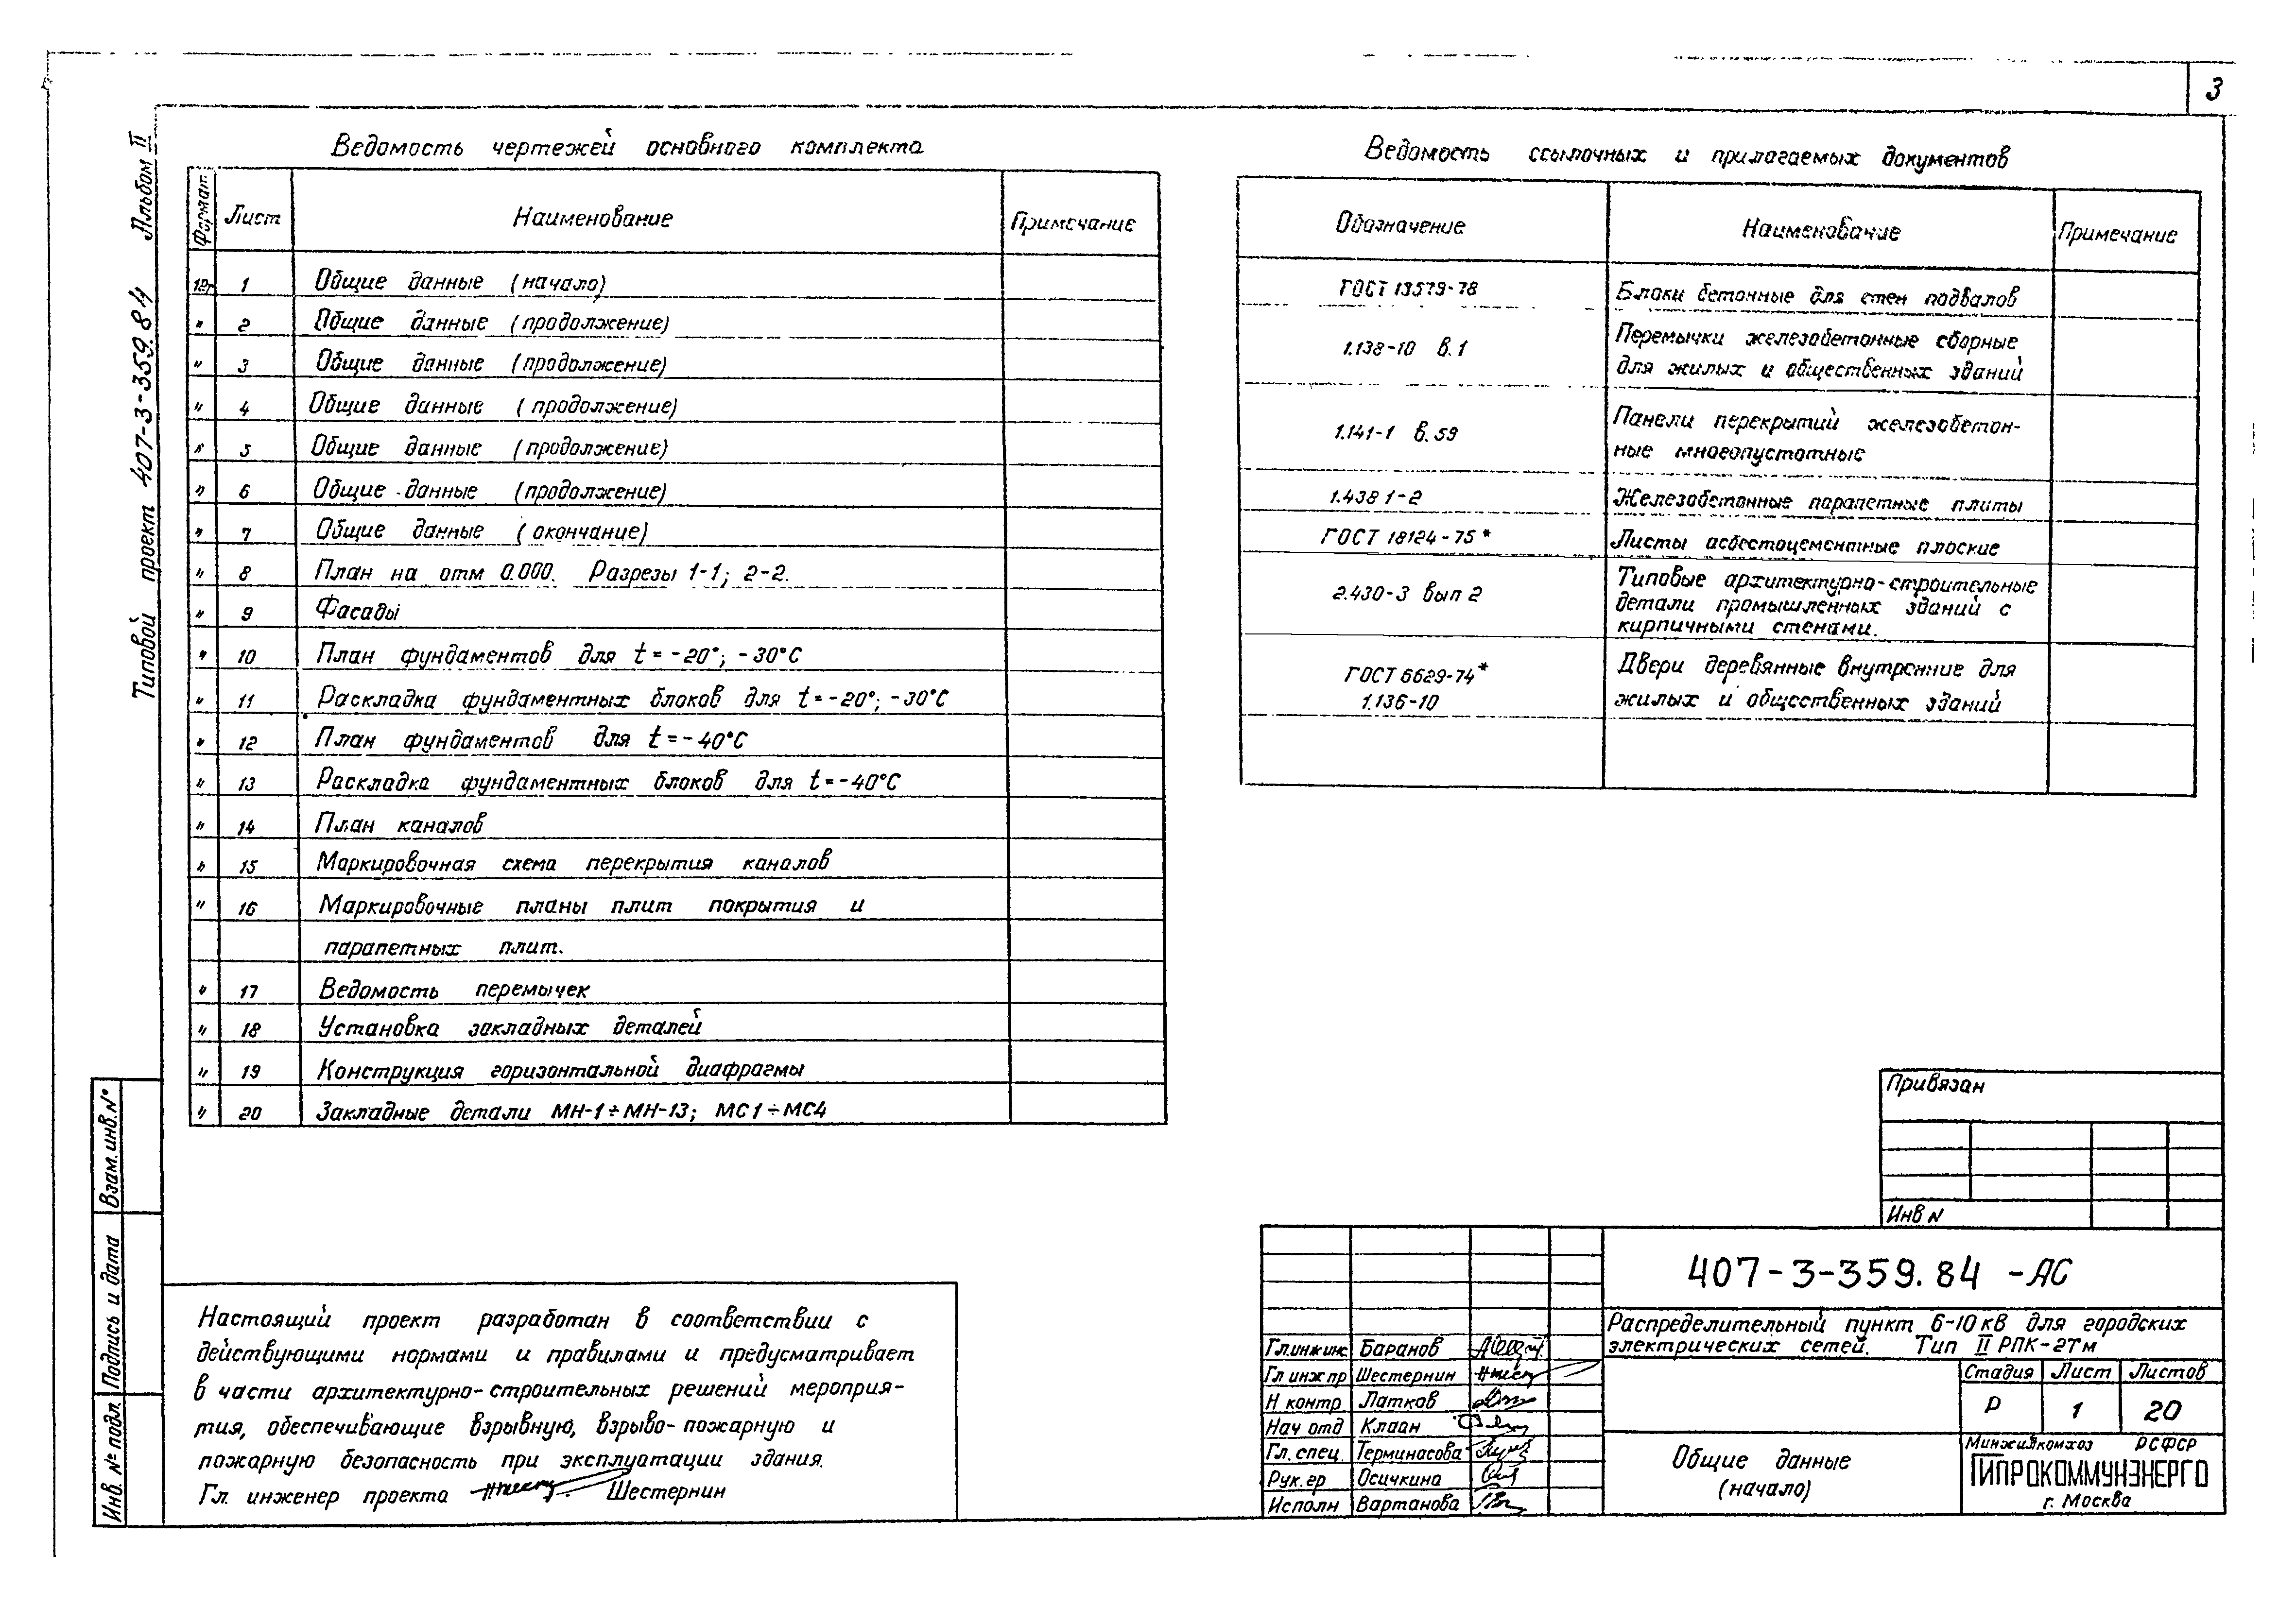 3
Типовой проект 407-3-359.84 Альбом II
Ведомость чертежей основного комплекта
Формат Лист Наименование Примечание
12г 1 Общие данные (начало)
" 2 Общие данные (продолжение)
" 3 Общие данные (продолжение)
" 4 Общие данные (продолжение)
" 5 Общие данные (продолжение)
" 6 Общие данные (продолжение)
" 7 Общие данные (окончание)
" 8 План на отм 0.000. Разрезы 1-1; 2-2.
" 9 Фасады
" 10 План фундаментов для t=-20°; -30°С
" 11 Раскладка фундаментных блоков для t=-20°; -30°С
" 12 План фундаментов для t=-40°С
" 13 Раскладка фундаментных блоков для t=-40°С
" 14 План каналов
" 15 Маркировочная схема перекрытия каналов
" 16 Маркировочные планы плит покрытия и
парапетных плит.
" 17 Ведомость перемычек
" 18 Установка закладных деталей
" 19 Конструкция горизонтальной диафрагмы
" 20 Закладные детали МН-1÷МН-13; МС1÷МС4
Ведомость ссылочных и прилагаемых документов
Обозначение Наименование Примечание
ГОСТ 13579-78 Блоки бетонные для стен подвалов
1.138-10 в.1 Перемычки железобетонные сборные
для жилых и общественных зданий
1.141-1 в.59 Панели перекрытий железобетон-
ные многопустотные
1.438 1-2 Железобетонные парапетные плиты
ГОСТ 18124-75* Листы асбестоцементные плоские
2.430-3 вып 2 Типовые архитектурно-строительные
детали промышленных зданий с
кирпичными стенами.
ГОСТ 6629-74* Двери деревянные внутренние для
1.136-10 жилых и общественных зданий
Взам. инв. №
Подпись и дата
Инв. № подл.
Настоящий проект разработан в соответствии с
действующими нормами и правилами и предусматривает
в части архитектурно-строительных решений мероприя-
тия, обеспечивающие взрывную, взрыво-пожарную и
пожарную безопасность при эксплуатации здания.
Гл. инженер проекта Шестернин
Привязан
Инв N
407-3-359.84 -АС
Распределительный пункт 6-10 кВ для городских
электрических сетей. Тип II РПК-2Тм
Гл.инж.инс Баранов
Гл инж пр Шестернин
Н контр Латков
Нач отд Клаан
Гл. спец Терминасова
Рук. гр Осичкина
Исполн Вартанова
Стадия Лист Листов
Р 1 20
Общие данные
(начало)
Минжилкомхоз РСФСР
ГИПРОКОММУНЭНЕРГО
г. Москва